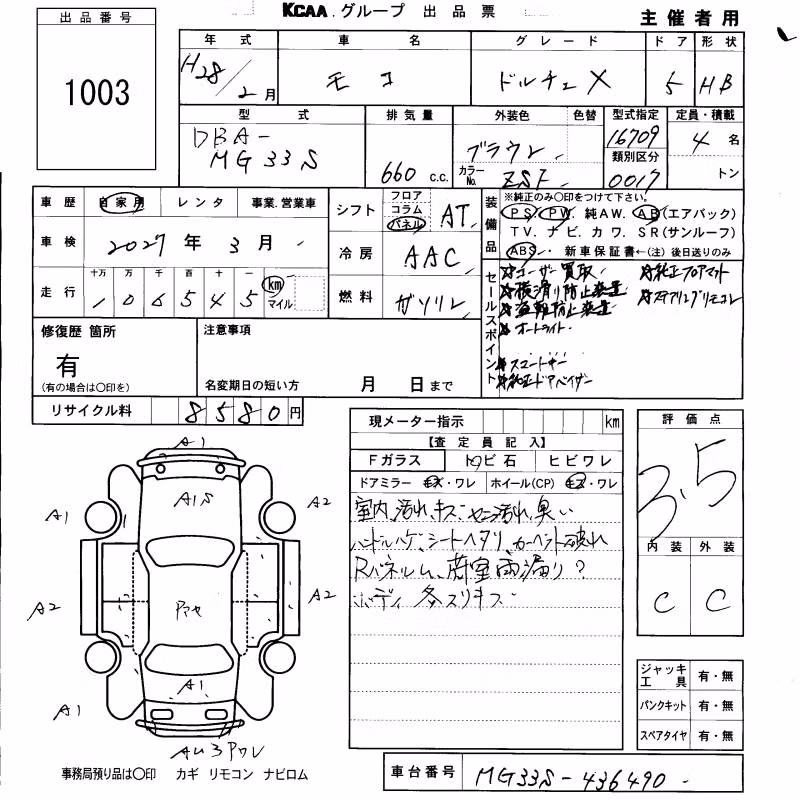 KCAA グループ 出品票
主催者用
出品番号
1003
年式 車名 グレード ドア 形状
H28/2月 モコ ドルチェX 5 HB
型式 排気量 外装色 色替 型式指定 定員・積載
DBA-
MG33S
660 c.c.
ブラウン
カラーNo. ZSF
16709
類別区分
0017
4名
トン
車歴 自家用 レンタ 事業.営業車
車検 2027年3月
走行 十万 万 千 百 十 一
106545 km マイル
シフト フロア コラム パネル AT
冷房 AAC
燃料 ガソリン
装備品
※純正のみ○印をつけて下さい。
PS. PW. 純AW. AB(エアバック)
TV. ナビ. カワ. SR(サンルーフ)
ABS. 新車保証書←(注)後日送りのみ
セールスポイント
☆ユーザー買取 ☆純正フロアマット
☆横滑り防止装置 ☆ステアリングリモコン
☆盗難防止装置
☆オートライト
☆スマートキー
☆純正ドアバイザー
修復歴 箇所
有
(有の場合は○印を)
注意事項
名変期日の短い方 月 日まで
リサイクル料 8580円
現メーター指示 km
【査定員記入】
Fガラス トビ石 ヒビワレ
ドアミラー キズ・ワレ ホイール(CP) キズ・ワレ
室内汚れ、キズ、シミ汚れ臭い
ハンドルハゲ、シートヘタリ、カーペット破れ
Rパネルム、荷室雨漏り?
ボディ 多スリキズ
評価点
3.5
内装 外装
C C
ジャッキ工具 有・無
パンクキット 有・無
スペアタイヤ 有・無
A1
A1S
A1 A2
A2 アマセ A2
A1
A1 A2
AU3 Pワレ
事務局預り品は○印 カギ リモコン ナビロム
車台番号 MG33S-436490